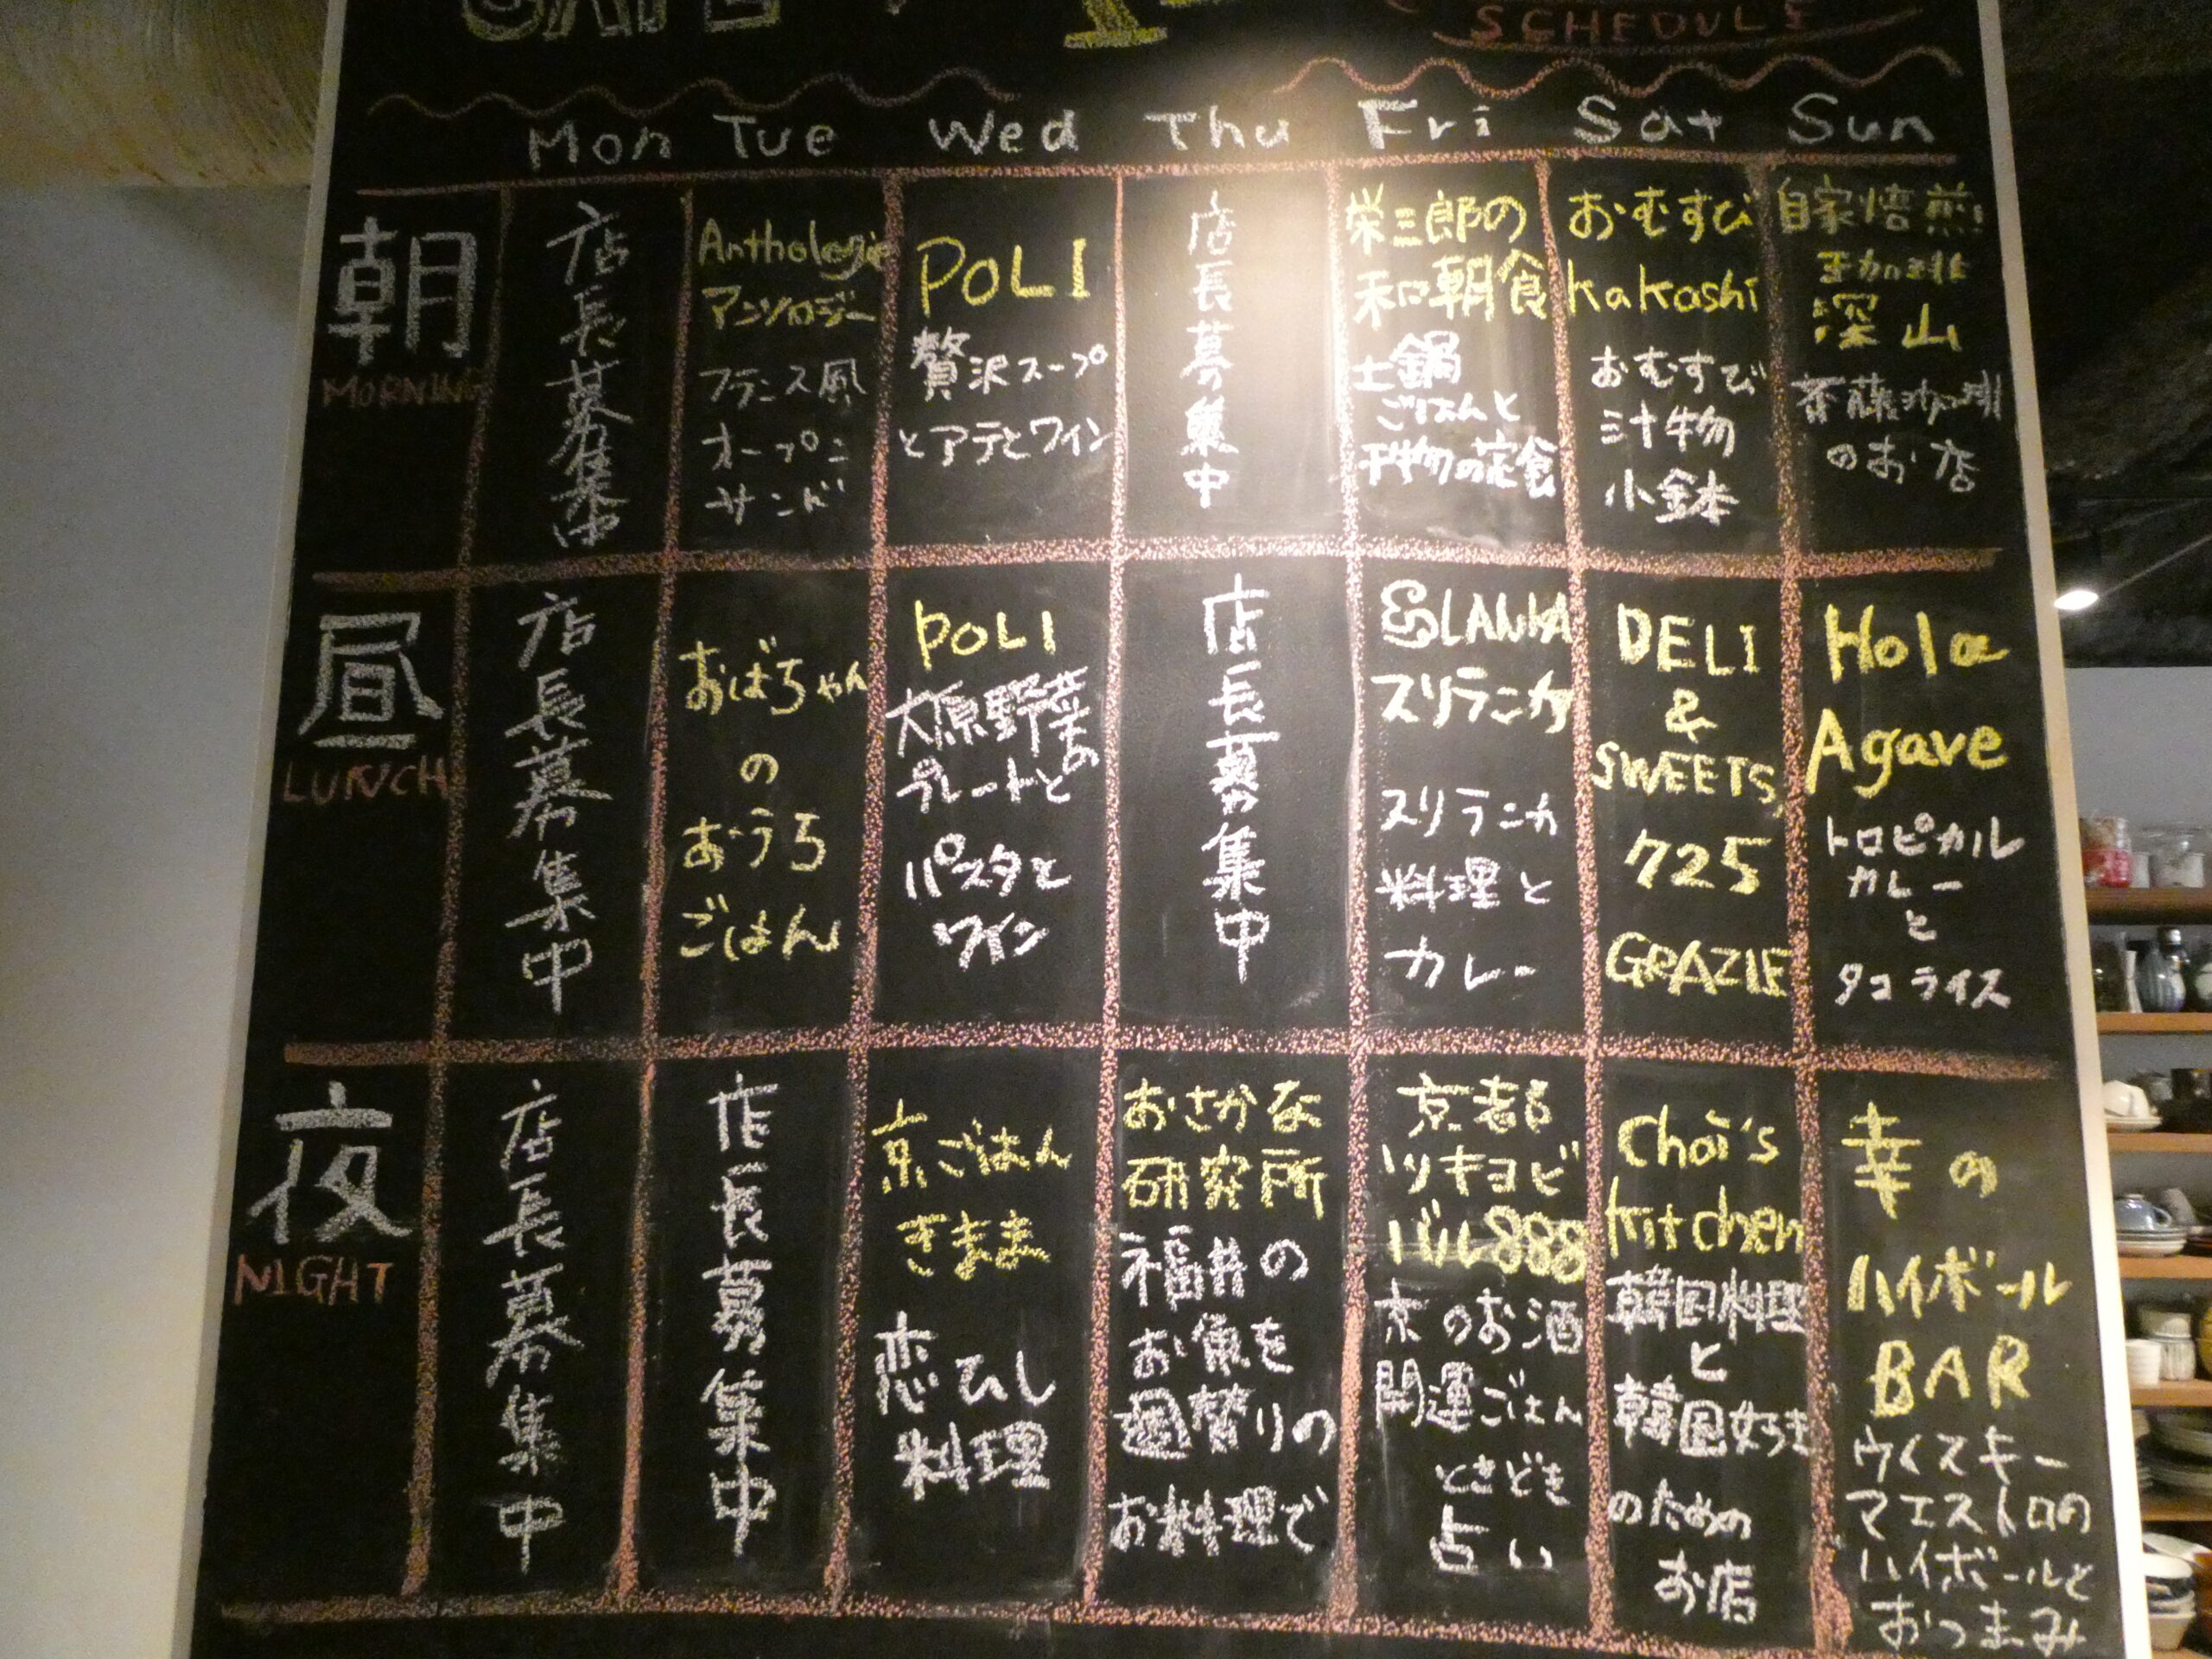 SCHEDULE
Mon Tue Wed Thu Fri Sat Sun
朝
MORNING
店長募集中
Anthologie
アンソロジー
フランス風
オープン
サンド
POLI
贅沢スープ
とアテとワイン
店長募集中
栄三郎の
和朝食
土鍋
ごはんと
干物の定食
おむすび
kakashi
おむすび
汁物
小鉢
自家焙煎
珈琲
深山
斎藤珈琲
のお店
昼
LUNCH
店長募集中
おばちゃん
の
おうち
ごはん
POLI
大原野菜の
プレートと
パスタと
ワイン
店長募集中
LANKA
スリランカ
スリランカ
料理と
カレー
DELI
&
SWEETS
725
GRAZIE
Hola
Agave
トロピカル
カレー
と
タコライス
夜
NIGHT
店長募集中
店長募集中
京ごはん
きまま
恋ひし
料理
おさかな
研究所
福井の
お魚を
週替りの
お料理で
京都
ツキヨビ
バル888
京のお酒
開運ごはん
ときどき
占い
Choi's
kitchen
韓国料理
と
韓国好き
のための
お店
幸の
ハイボール
BAR
ウイスキー
マエストロの
ハイボールと
おつまみ